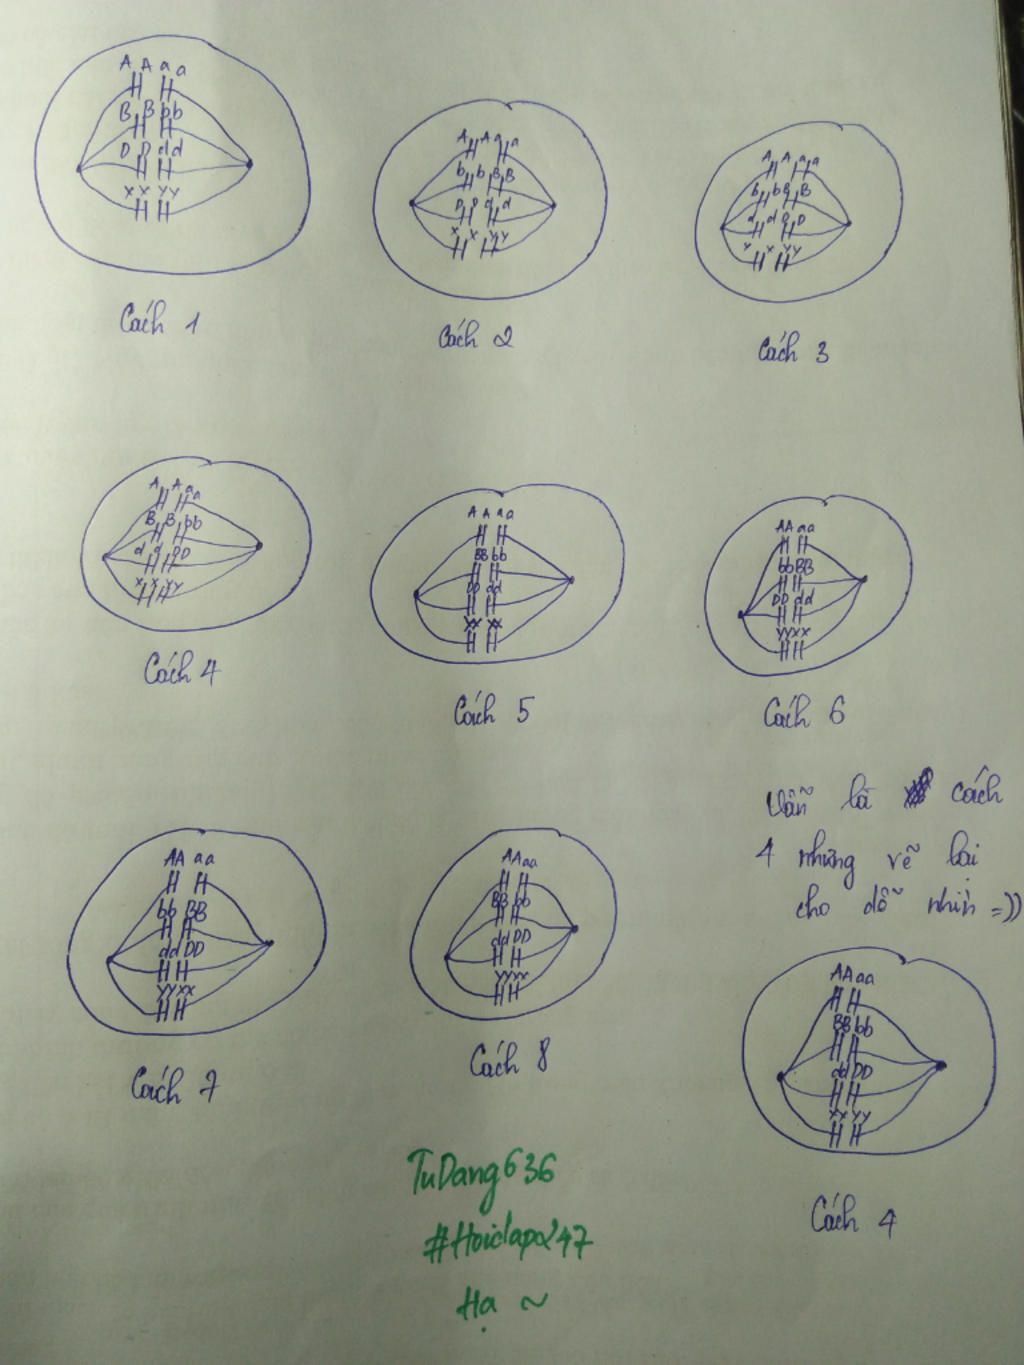 A A a a
B B b b
D D d d
X X Y Y
Cách 1
A A a a
b b B B
D D d d
X X Y Y
Cách 2
A A a a
b b B B
d d D D
X X Y Y
Cách 3
A A a a
B B b b
d d D D
X X Y Y
Cách 4
A A a a
BB bb
DD dd
YY XX
Cách 5
AA aa
bb BB
DD dd
YY XX
Cách 6
AA aa
bb BB
dd DD
YY XX
Cách 7
AA aa
BB bb
dd DD
YY XX
Cách 8
Vẫn là cách
4 nhưng vẽ lại
cho dễ nhìn =))
AA aa
BB bb
dd DD
XX YY
Cách 4
TuDang636
#Hoidap247
Hạ ~